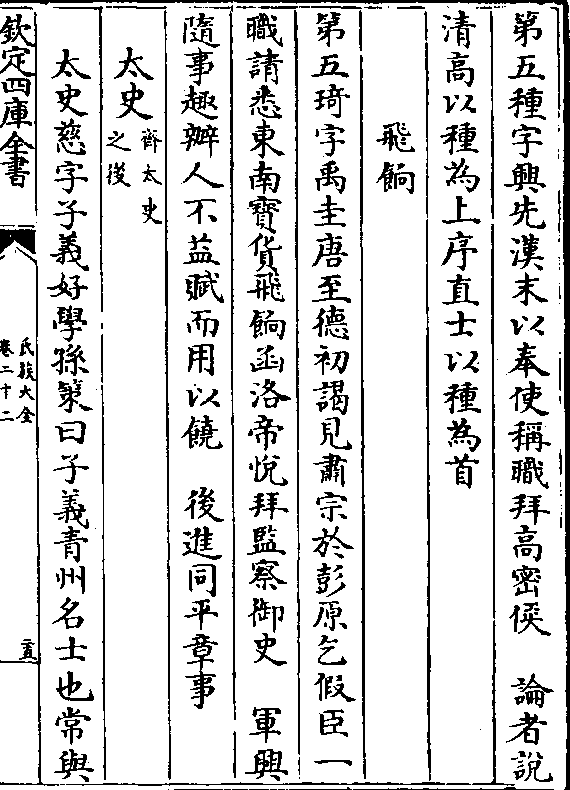 第五種字興先漢末以奉使稱職拜高密侯　論者說
清高以種為上序直士以種為首
飛餉
第五琦字禹圭唐至德初謁見肅宗於彭原乞假臣一
職請悉東南寶貨飛餉函洛帝悅拜監察御史　軍興
隨事趣辦人不益賦而用以饒　後進同平章事
太史齊太史之後
太史慈字子義好學孫策曰子義青州名士也常與
欽定四庫全書
氏族大全
卷二十二